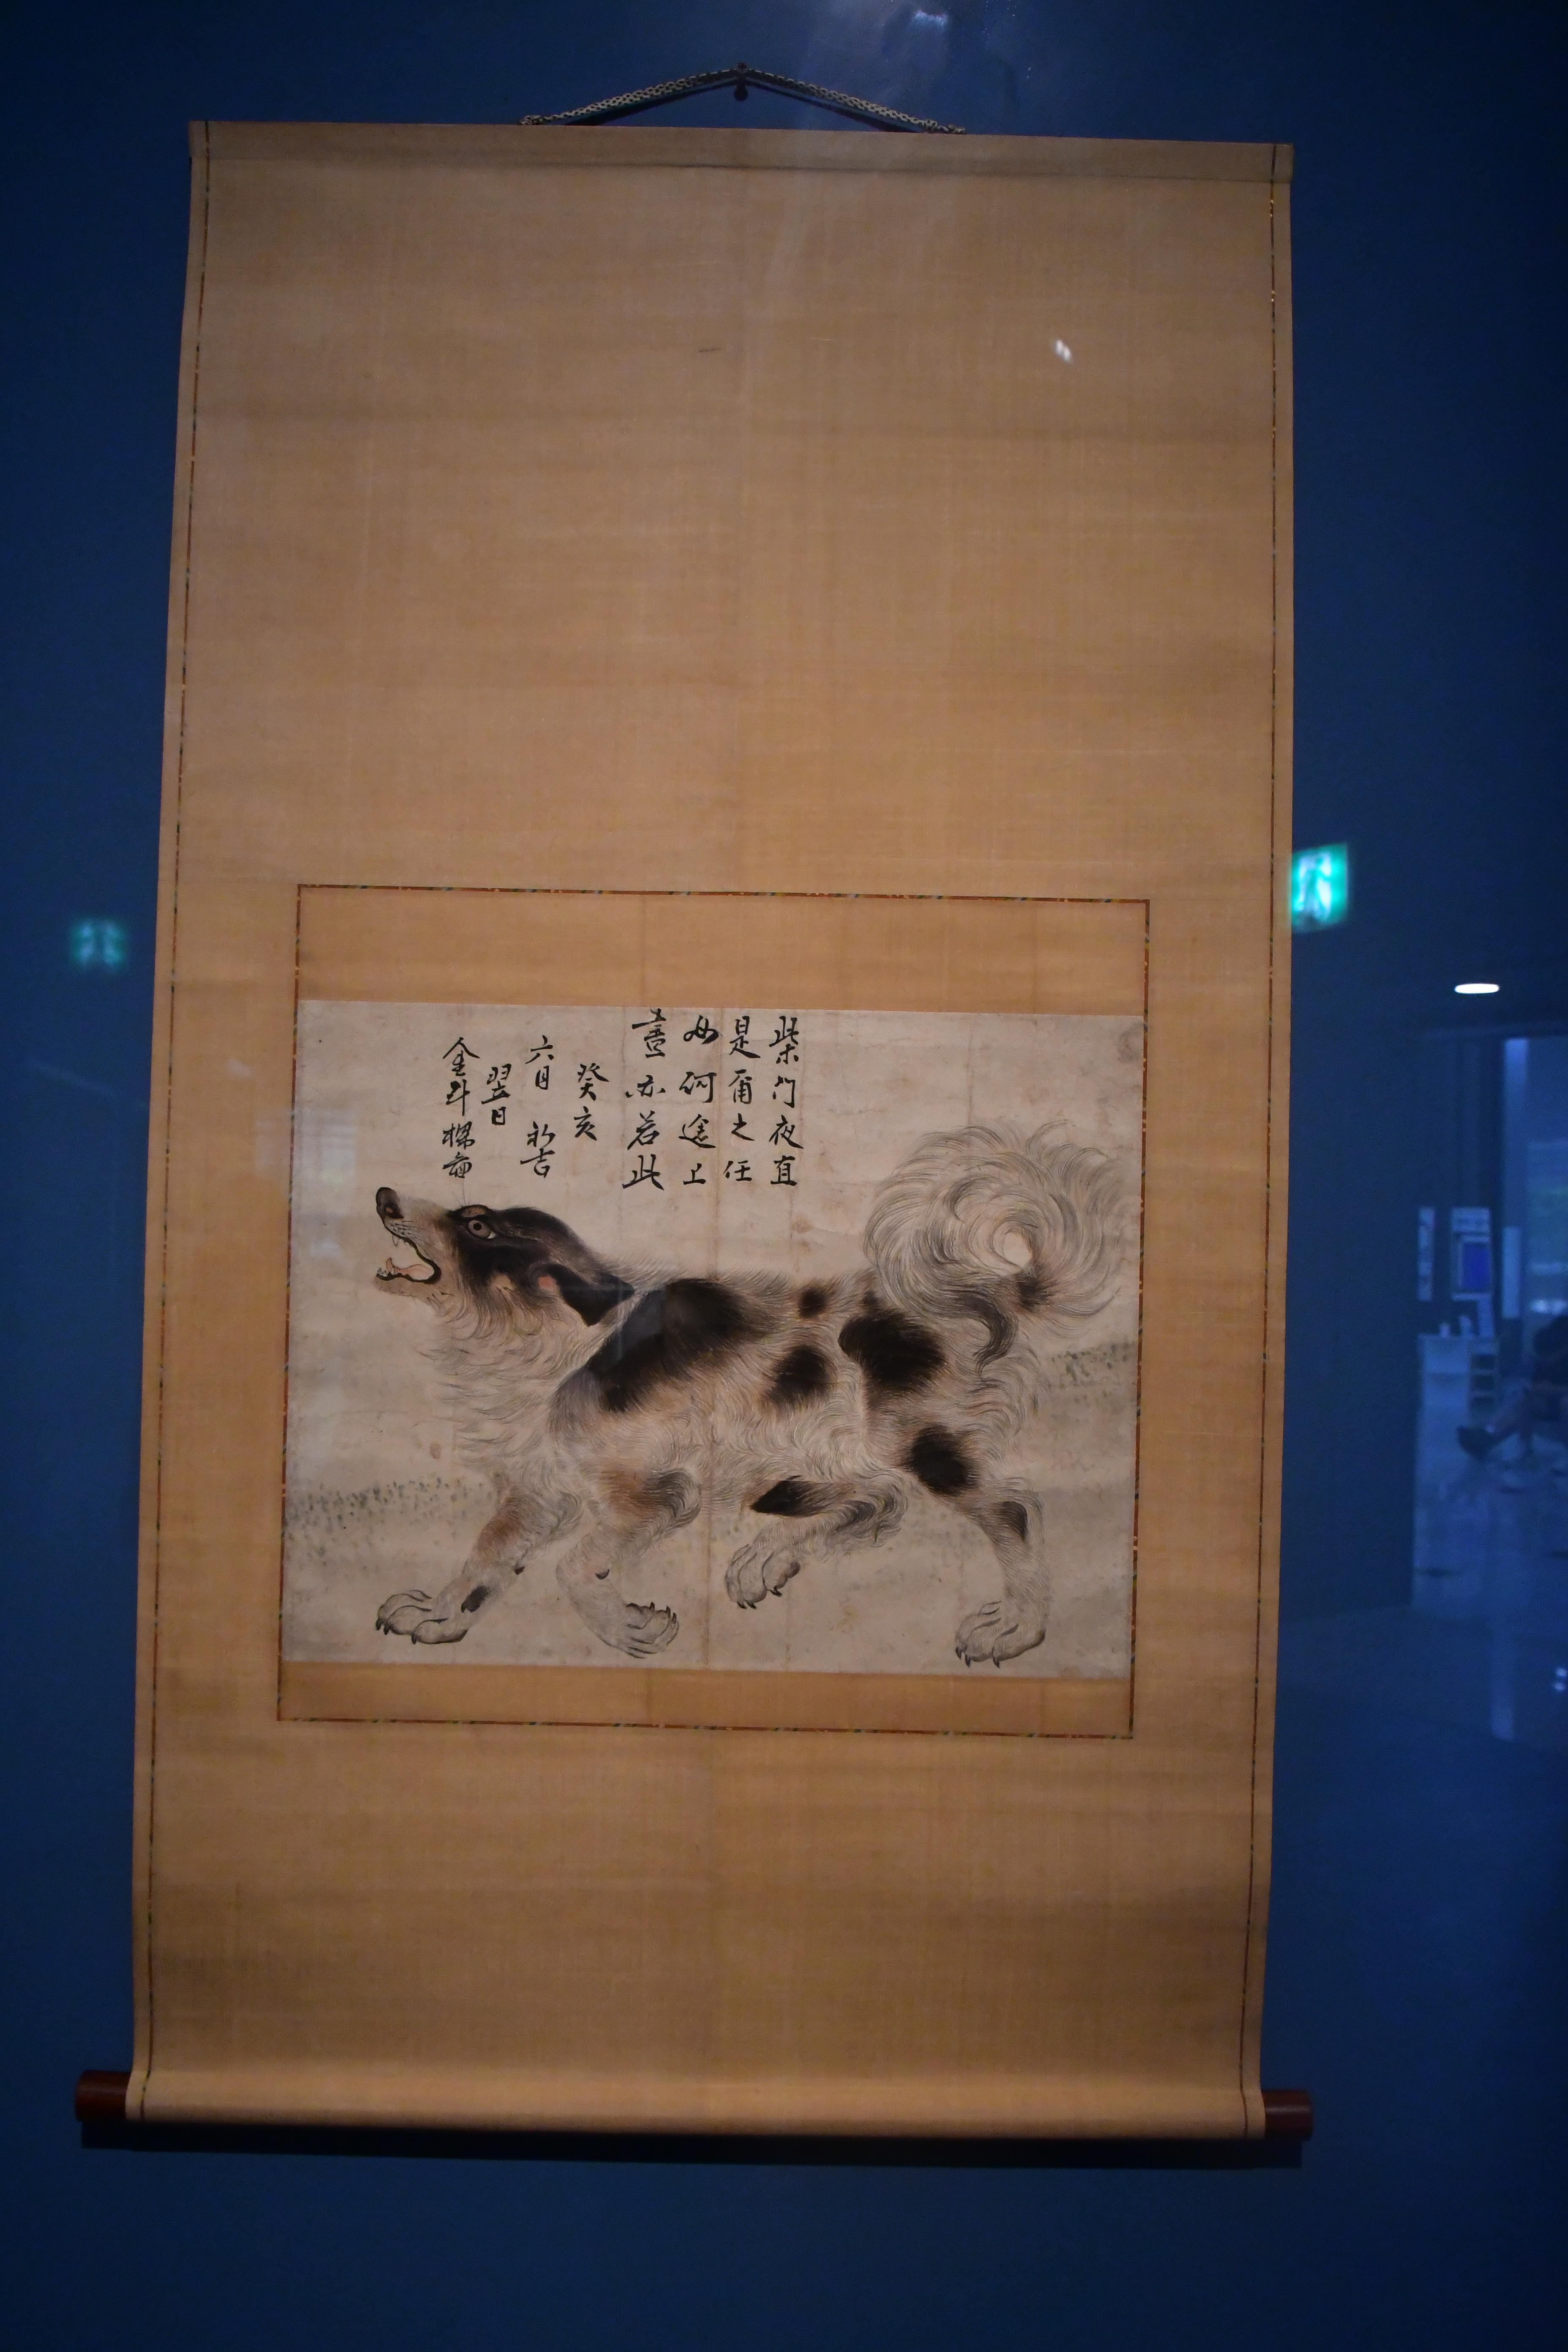 柴門夜直
是爾之任
如何途上
晝亦若此
癸亥
六月 初吉
翌日
金斗樑啚